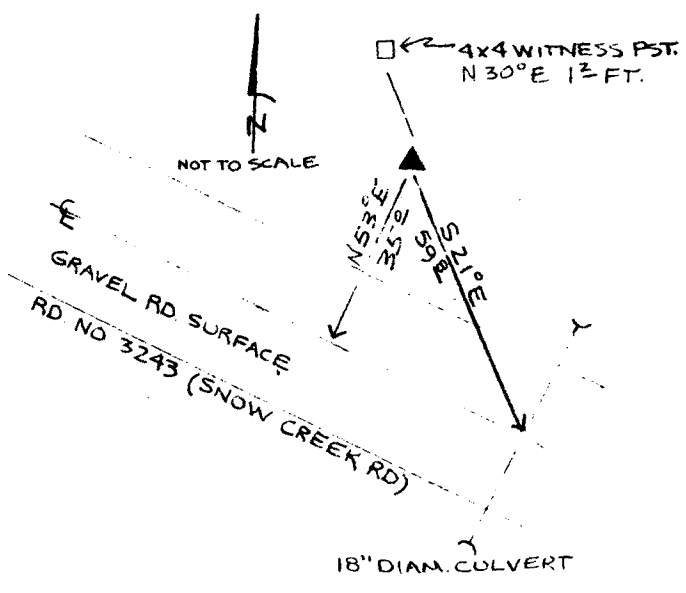 4x4 WITNESS PST.
N 30° E 1² FT.
N
NOT TO SCALE
N53°E
35-0
S 21° E
℄
GRAVEL RD. SURFACE
RD. NO 3243 (SNOW CREEK RD)
18" DIAM. CULVERT